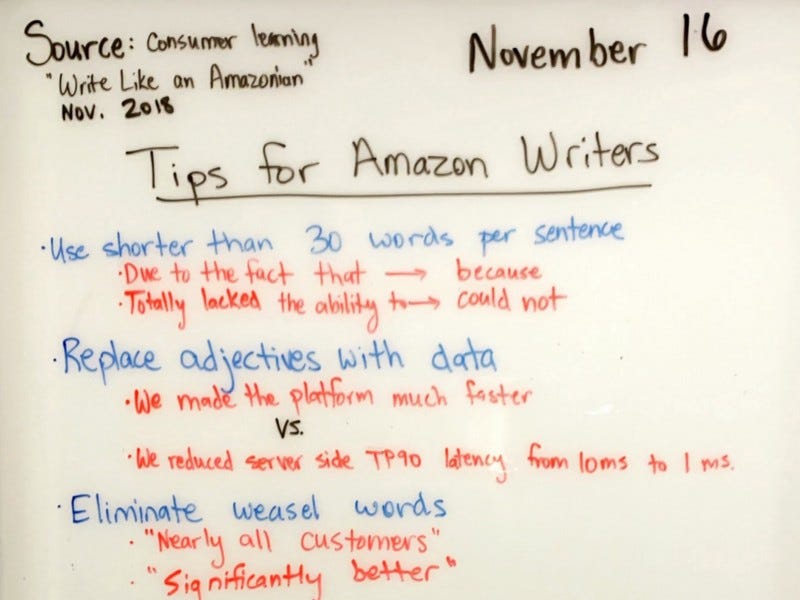 Source: Consumer learning
"Write Like an Amazonian"
Nov. 2018
November 16
Tips for Amazon Writers
· Use shorter than 30 words per sentence
· Due to the fact that → because
· Totally lacked the ability to → could not
· Replace adjectives with data
· We made the platform much faster
VS.
· We reduced server side TP90 latency from 10ms to 1 ms.
· Eliminate weasel words
· "Nearly all customers"
· "Significantly better"